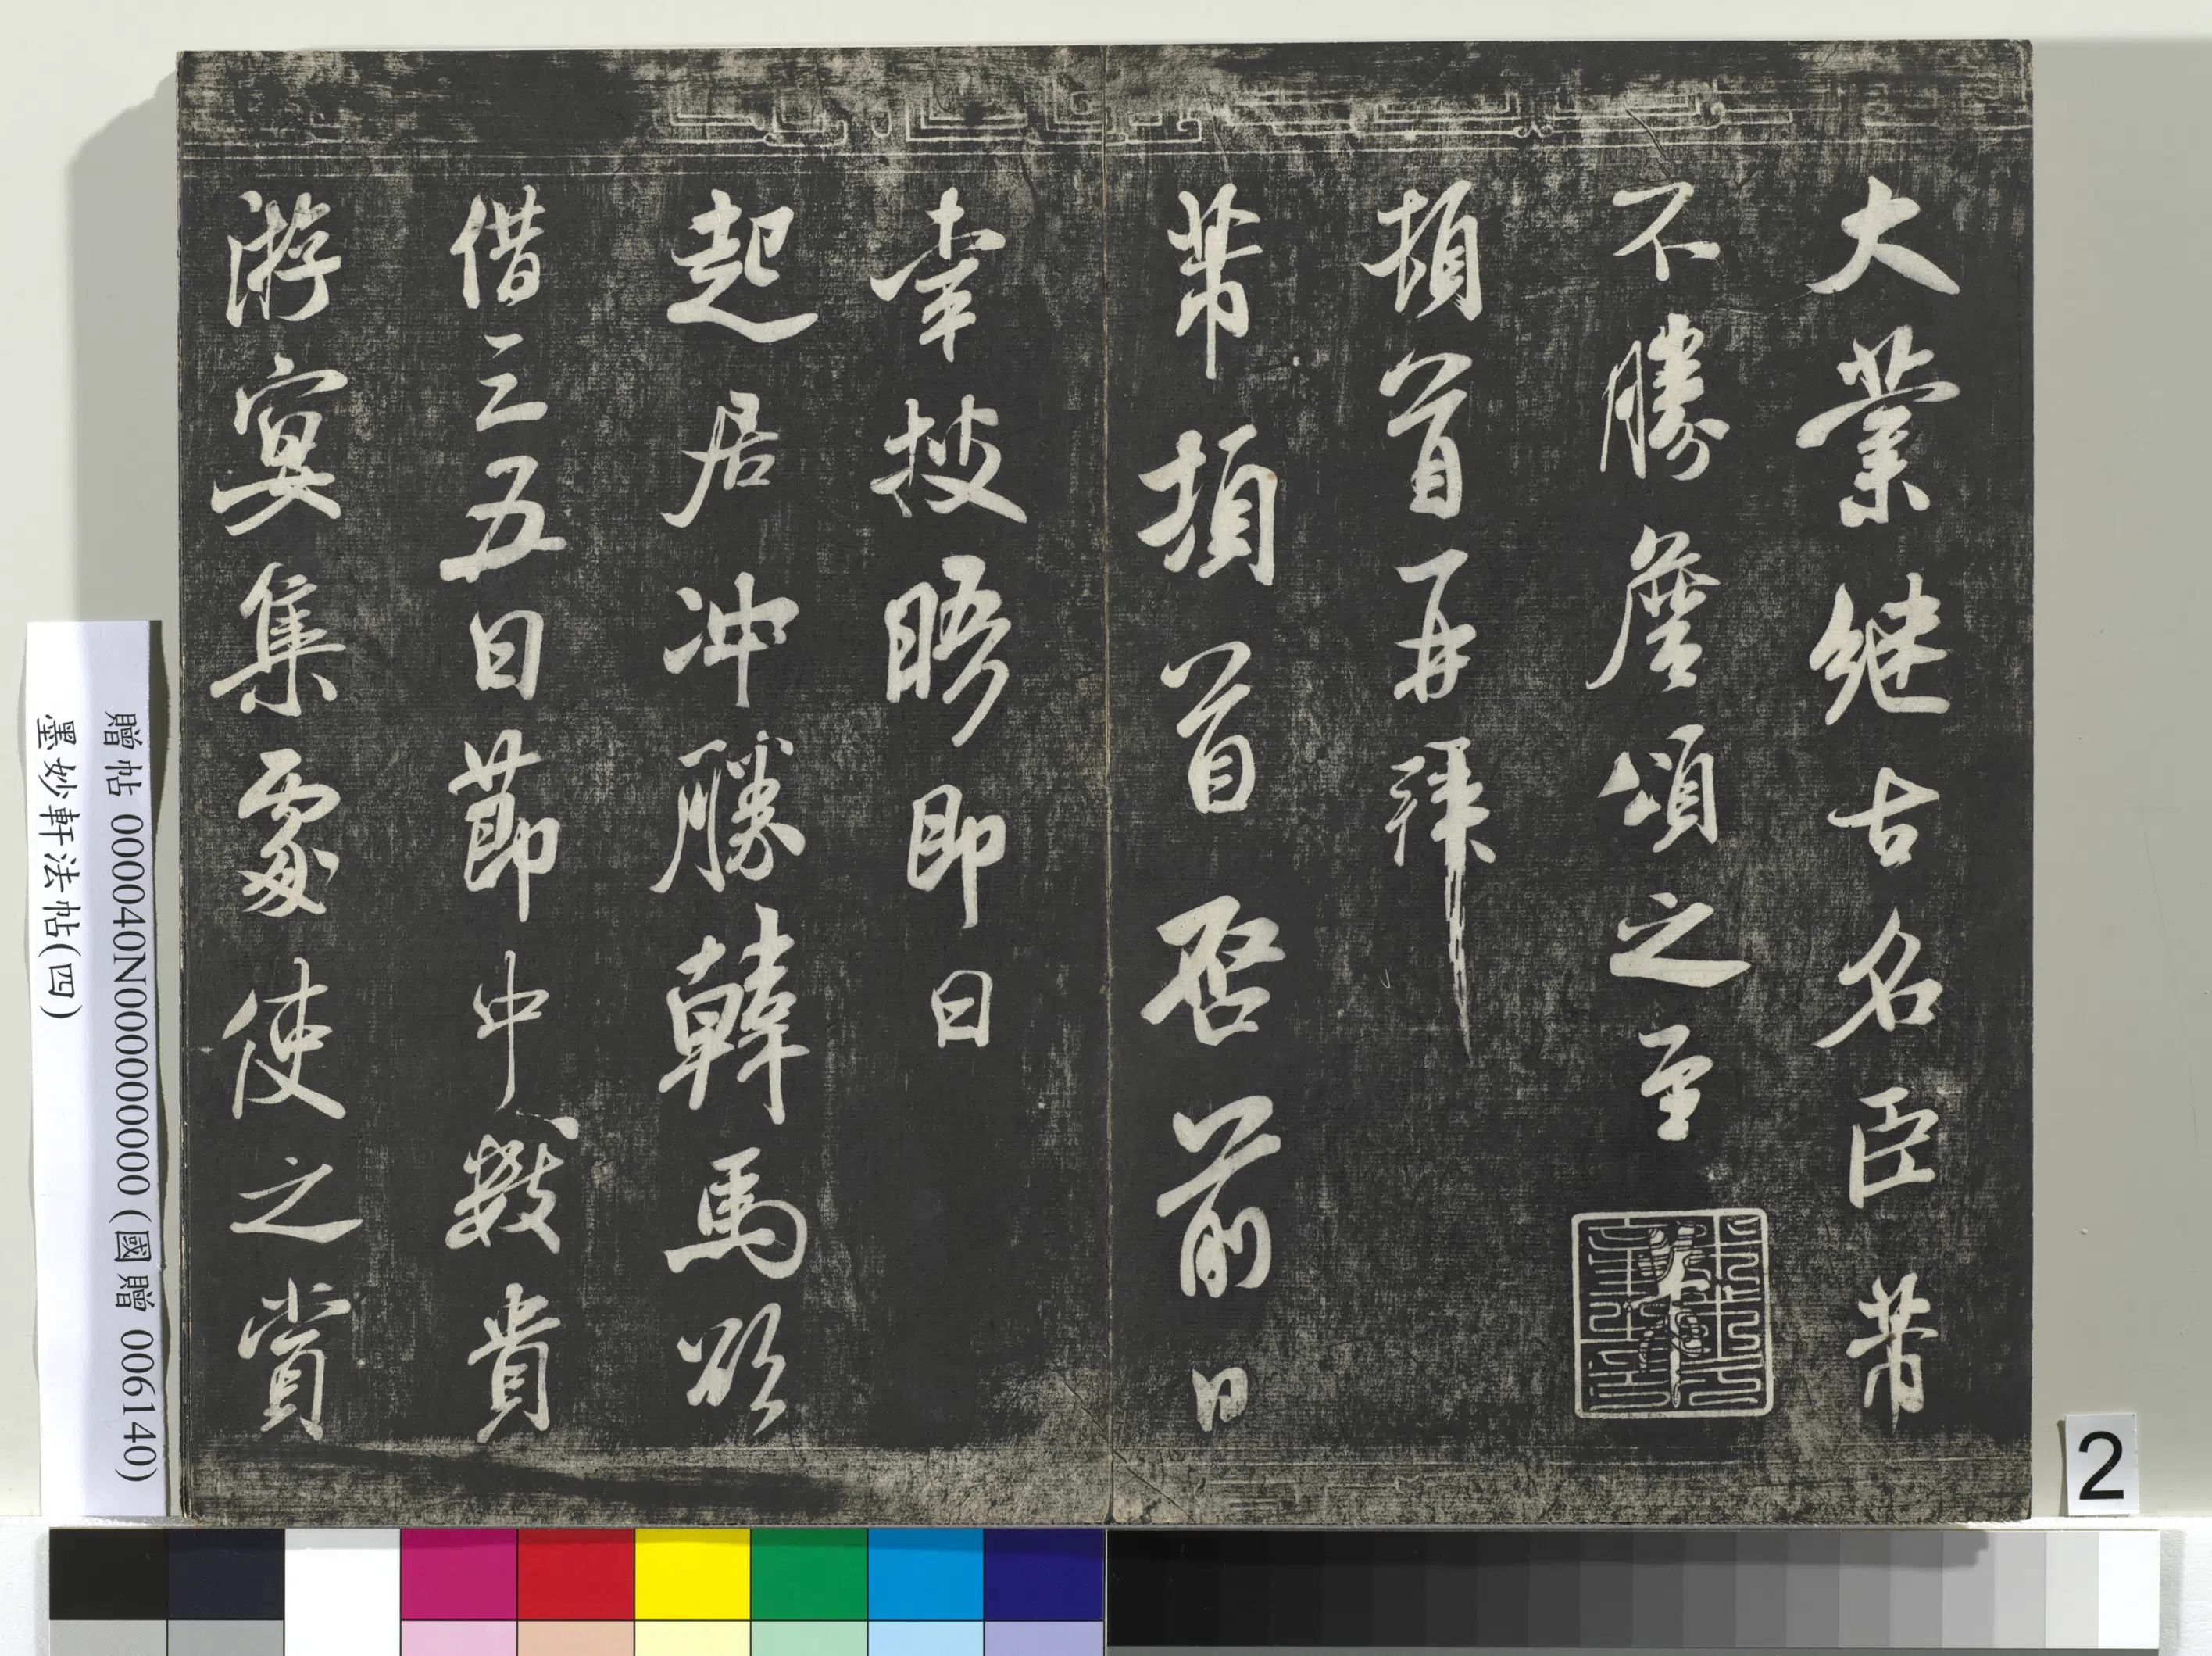 大業繼古名臣芾
不勝詹頌之至
頓首再拜
芾頓首啓前日
幸披晤即日
起居冲勝韓馬欲
借三五日節中數貴
游宴集處使之賞
贈帖 000040N000000000 (國贈 006140)
墨妙軒法帖(四)
2